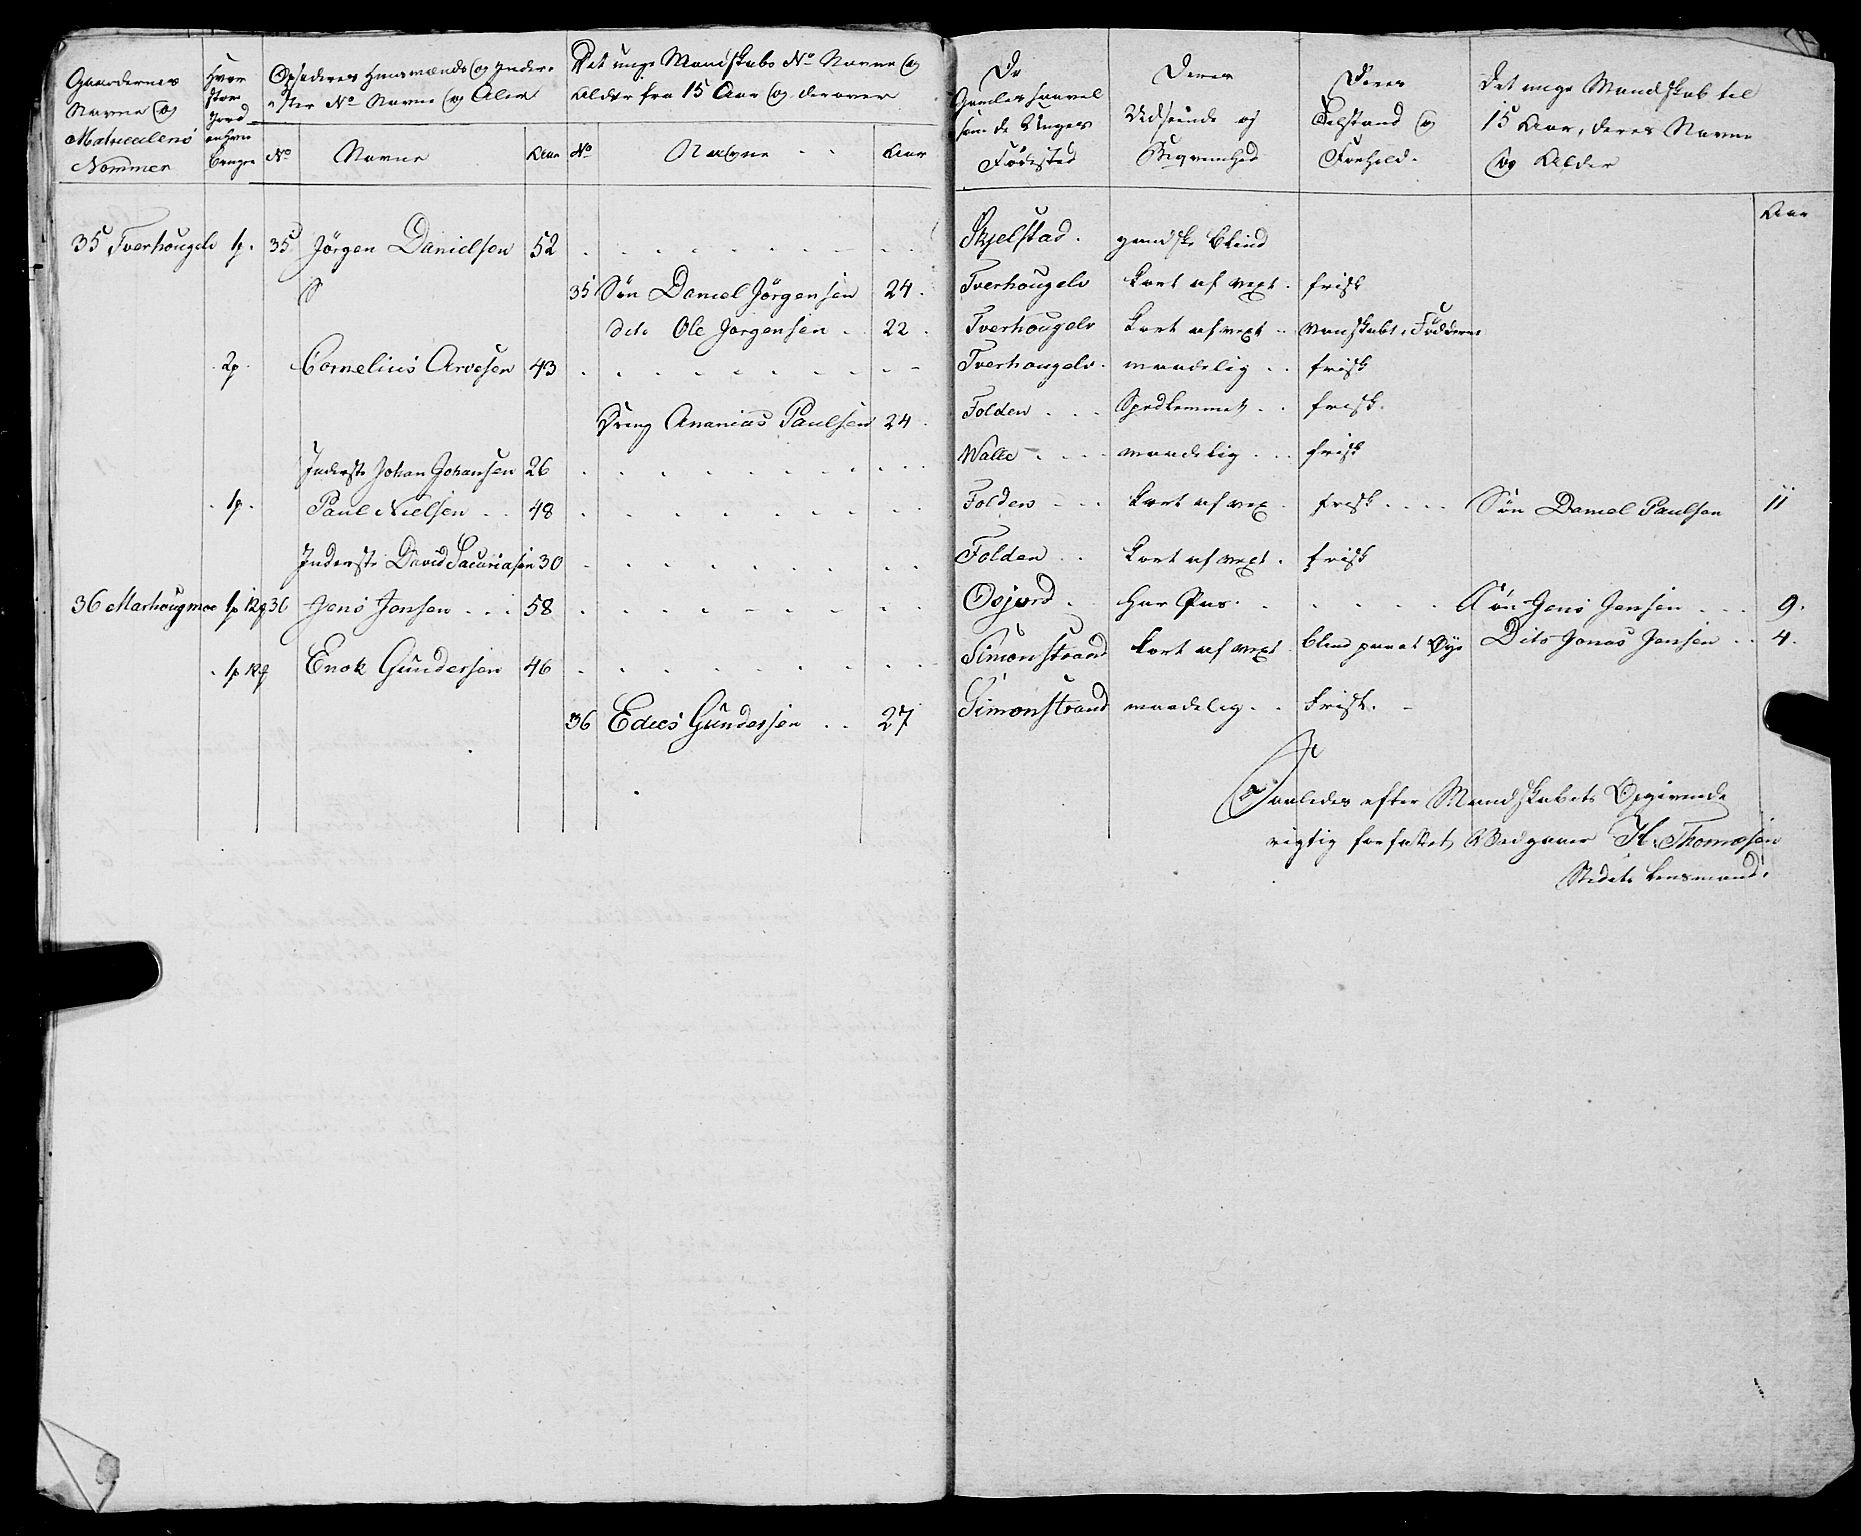 Gaardernes
Navne og
Matriculens
Nommer
Hvor
stor
Jord
enhver
bruger
Opsidderes Huusmænds og Inder-
ster No Navne og Alder
No
Navne
Aar
Det unge Mandskabs No Navne og
Alder fra 15 Aar og derover
No
Navne
Aar
De
Gamles saavel
som de Unges
Fødested
Deres
Udseende og
Deres
Tilstand og
Forhold.
Det unge Mandskab til
15 Aar, deres Navne
og Alder
Aar
35 Tverhougelv 1p. 35 Jörgen Danielsen 52 Skjelstad. gandske blind
35 Søn Daniel Jörgensen 24. Tverhougelv kort af vext. frisk
dito Ole Jörgensen 22. Tverhougelv kort af vext
2p. Cornelius Arvesen 43 Tverhougelv. maadelig frisk
Dreng Ananias Paulsen 24. Folden frisk.
Inderste Johan Johansen 26 Walle maadelig frisk
1p. Paul Nielsen 48 Folden kort af vex. frisk Søn Daniel Paulsen 11
Inderste David Sacariasen 30 Folden kort af vext. frisk
36 Marhougmoe 1p 12 36 Jens Jensen 58 Osjord har Pas. Søn Jens Jensen 9.
Dito Jonas Jensen 4.
1p Enok Gundersen 46 Simonstrand kort af vext. blind paa et Øye
36 Edies Gundersen 27 Simonstrand maadelig. Frisk.
Saaledes efter Mandskabets Opgivende
rigtig forfattet Vedgaaer H. Thomesen
Stedets Lensmand.